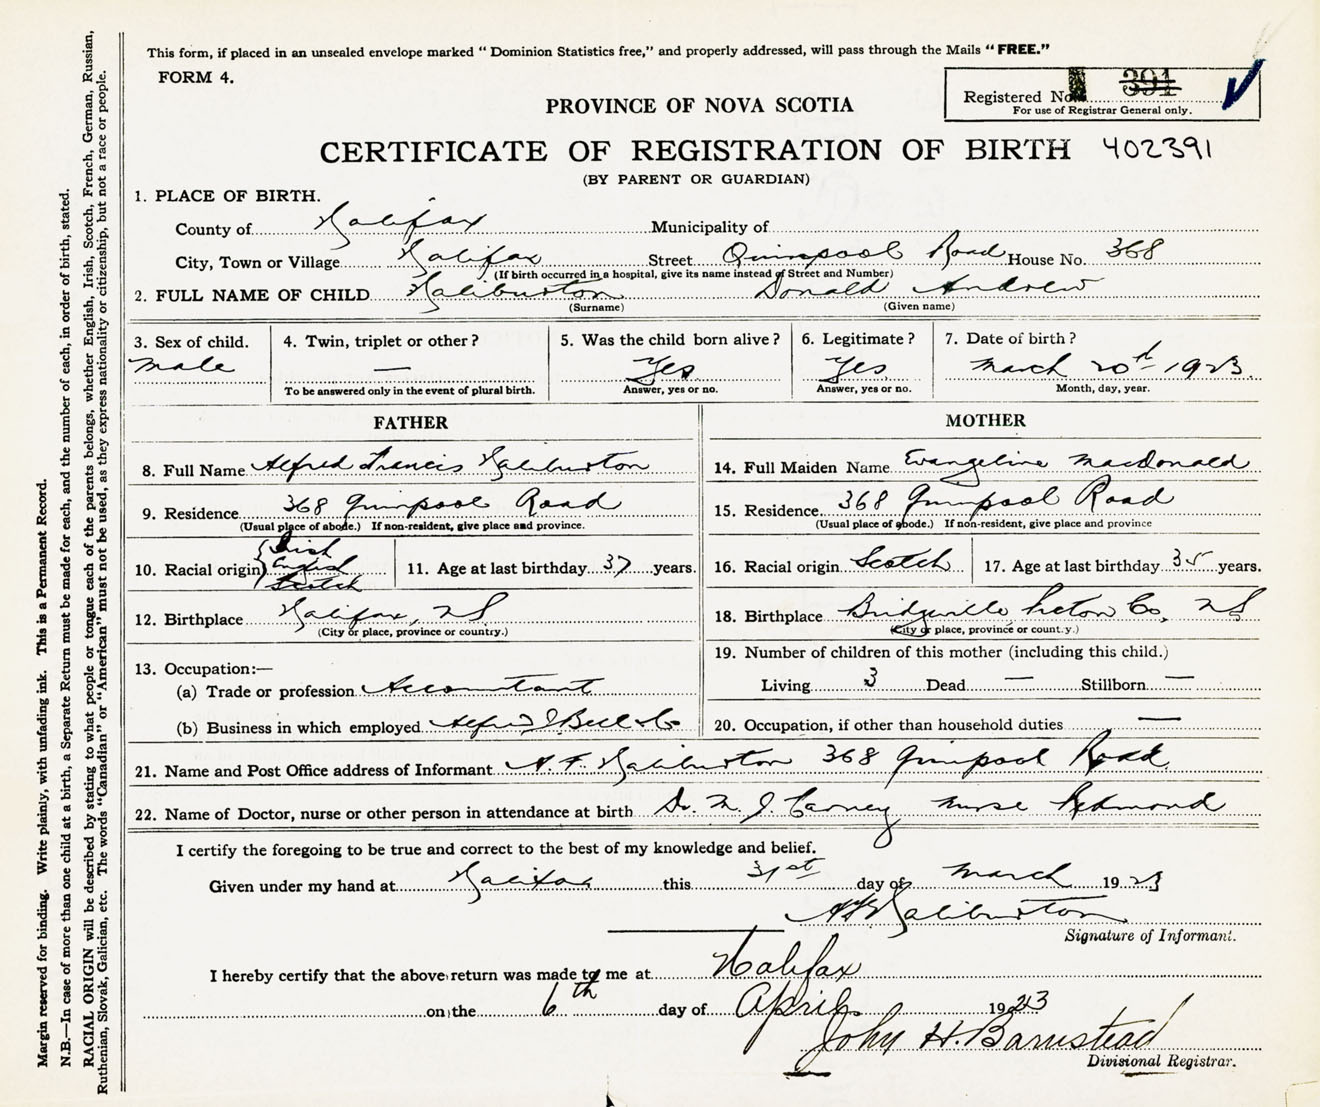 This form, if placed in an unsealed envelope marked “Dominion Statistics free,” and properly addressed, will pass through the Mails “FREE.”
FORM 4.
Registered No. 391
For use of Registrar General only.
PROVINCE OF NOVA SCOTIA
CERTIFICATE OF REGISTRATION OF BIRTH 402391
(BY PARENT OR GUARDIAN)
1. PLACE OF BIRTH.
County of Halifax Municipality of
City, Town or Village Halifax Street Quinpool Road House No. 368
(If birth occurred in a hospital, give its name instead of Street and Number)
2. FULL NAME OF CHILD Haliburton Donald Andrew
(Surname) (Given name)
3. Sex of child. 4. Twin, triplet or other? 5. Was the child born alive? 6. Legitimate? 7. Date of birth?
Male — Yes Yes March 20th 1923.
To be answered only in the event of plural birth. Answer, yes or no. Answer, yes or no. Month, day, year.
FATHER
8. Full Name Alfred Francis Haliburton
9. Residence 368 Quinpool Road
(Usual place of abode.) If non-resident, give place and province.
10. Racial origin Irish English Scotch 11. Age at last birthday 37 years.
12. Birthplace Halifax, NS
(City or place, province or country.)
13. Occupation:—
(a) Trade or profession Accountant
(b) Business in which employed Alfred J Bell & Co
MOTHER
14. Full Maiden Name Evangeline MacDonald
15. Residence 368 Quinpool Road
(Usual place of abode.) If non-resident, give place and province
16. Racial origin Scotch 17. Age at last birthday 35 years.
18. Birthplace Bridgeville Pictou Co, NS
(City or place, province or count.y.)
19. Number of children of this mother (including this child.)
Living 3 Dead — Stillborn —
20. Occupation, if other than household duties —
21. Name and Post Office address of Informant A. F. Haliburton 368 Quinpool Road.
22. Name of Doctor, nurse or other person in attendance at birth Dr. M. J. Carney Nurse Redmond
I certify the foregoing to be true and correct to the best of my knowledge and belief.
Given under my hand at Halifax this 31st day of March 1923
AF Haliburton
Signature of Informant.
I hereby certify that the above return was made to me at Halifax
on the 6th day of April 1923
John H. Barnstead
Divisional Registrar.
Margin reserved for binding. Write plainly, with unfading ink. This is a Permanent Record.
N.B.—In case of more than one child at a birth, a Separate Return must be made for each, and the number of each, in order of birth, stated.
RACIAL ORIGIN will be described by stating to what people or tongue each of the parents belongs, whether English, Irish, Scotch, French, German, Russian,
Ruthenian, Slovak, Galician, etc. The words “Canadian” or “American” must not be used, as they express nationality or citizenship, but not a race or people.